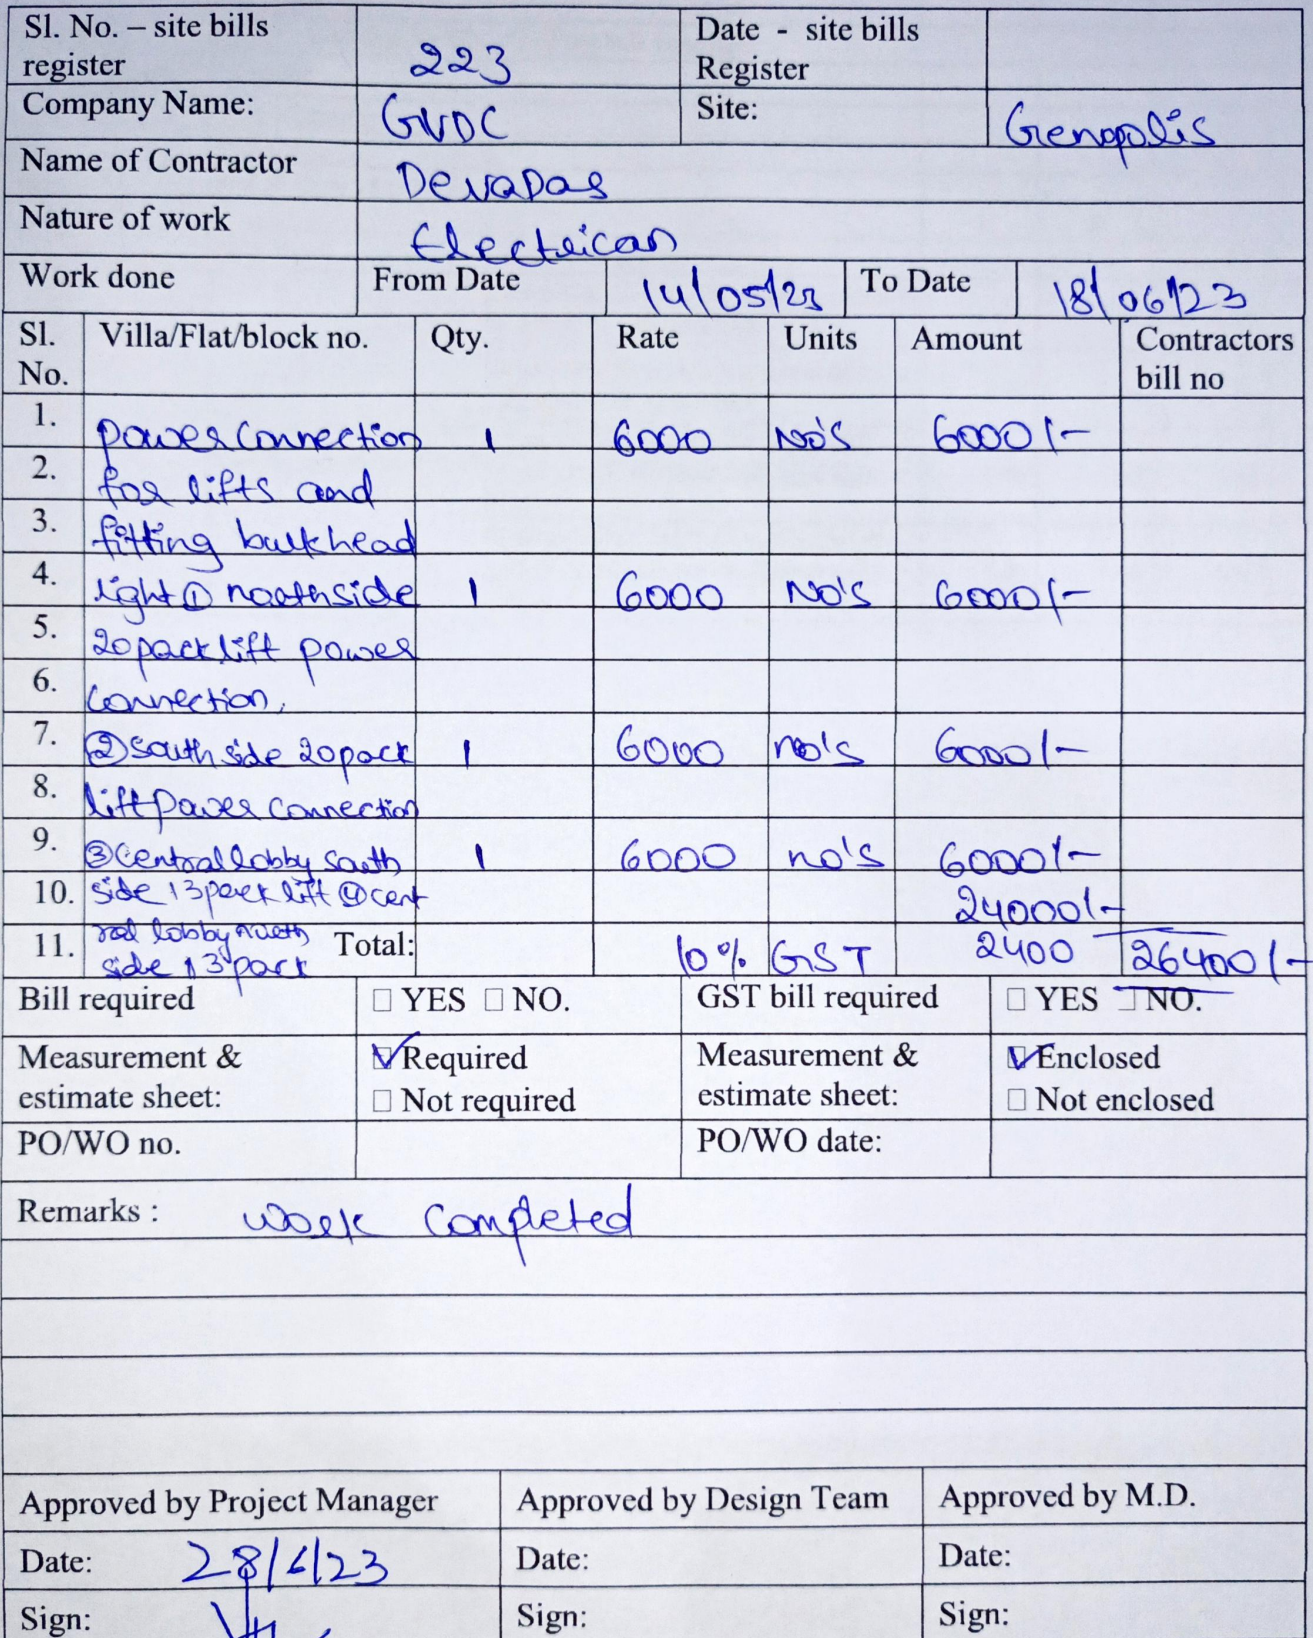 Sl. No. – site bills register 223 Date - site bills Register
Company Name: GVDC Site: Genopolis
Name of Contractor Devadas
Nature of work Electrican
Work done From Date 14/05/23 To Date 18/06/23
Sl. No. Villa/Flat/block no. Qty. Rate Units Amount Contractors bill no
1. power connection 1 6000 No's 6000/-
2. for lifts and
3. fitting bulkhead
4. light ① north side 1 6000 No's 6000/-
5. 20 pack lift power
6. connection,
7. ② south side 20 pack 1 6000 no's 6000/-
8. lift power connection
9. ③ central lobby south 1 6000 no's 6000/-
10. side 13 pack lift ④ cent 24000/-
11. ral lobby north Total: 10% GST 2400 26400/-
side 13 pack
Bill required □ YES □ NO. GST bill required □ YES □ NO.
Measurement & estimate sheet: ☑ Required Measurement & estimate sheet: ☑ Enclosed
□ Not required □ Not enclosed
PO/WO no. PO/WO date:
Remarks : work completed
Approved by Project Manager Approved by Design Team Approved by M.D.
Date: 28/6/23 Date: Date:
Sign: Sign: Sign: